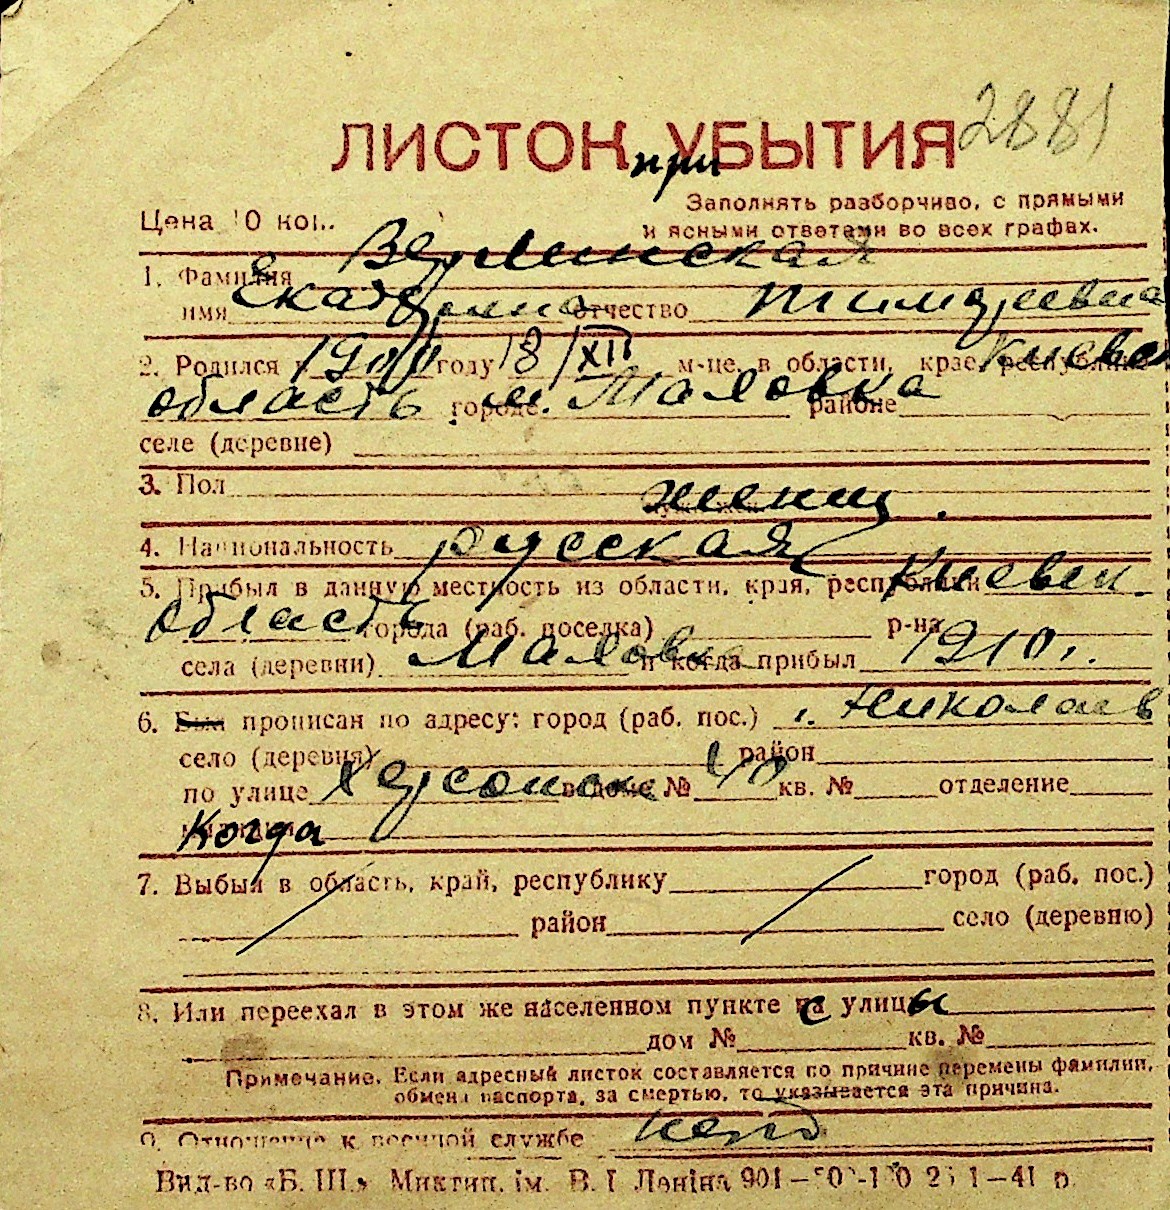 2881
ЛИСТОК УБЫТИЯ
при
Заполнять разборчиво, с прямыми
Цена 10 коп. и ясными ответами во всех графах.
1. Фамилия Верлинская
имя Екатерина отчество Тимофеевна
2. Родился 1900 году 18/XII м-це, в области, крае, республике Киевск
область городе м. Маловка районе
селе (деревне)
3. Пол женщ.
4. Национальность русская
5. Прибыл в данную местность из области, края, республики Киевск.
область города (раб. поселка) р-на
села (деревни) Маловка и когда прибыл 1910 г.
6. Был прописан по адресу: город (раб. пос.) г. Николаев
село (деревня) район
по улице Херсонск в доме № 40 кв. № отделение
Когда
7. Выбыл в область, край, республику город (раб. пос.)
район село (деревню)
8. Или переехал в этом же населенном пункте с улицы
дом № кв. №
Примечание. Если адресный листок составляется по причине перемены фамилии,
обмена паспорта, за смертью, то указывается эта причина.
9. Отношение к военной службе
Вид-во «Б. Ш.» Миктип. ім. В. І Леніна